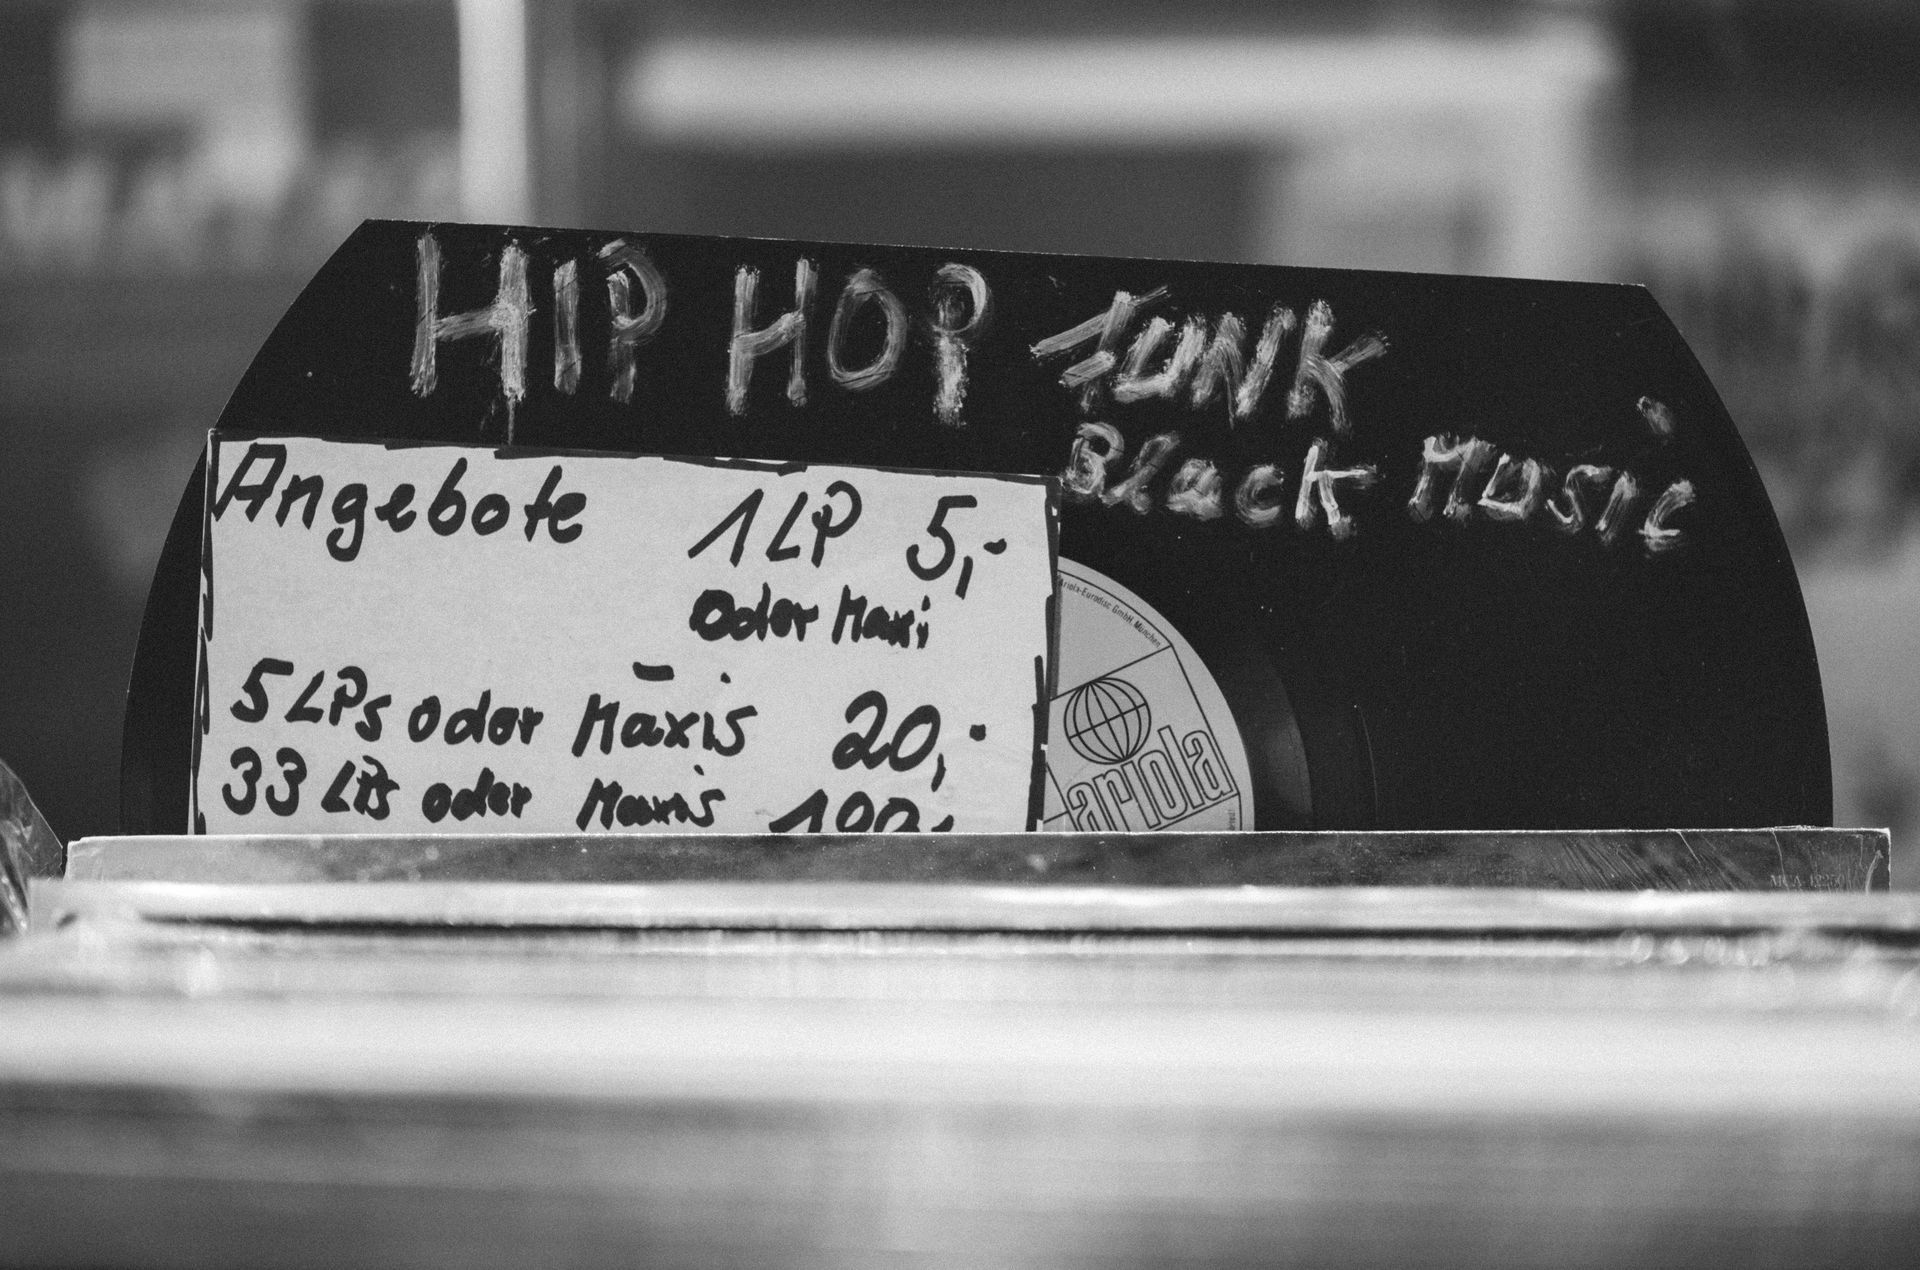 HIP HOP FUNK
Black Music
Angebote 1 LP 5,-
oder Maxi
5 LPs oder Maxis 20,-
33 LPs oder Maxis 100,-
Ariola-Eurodisc GmbH, München
ariola